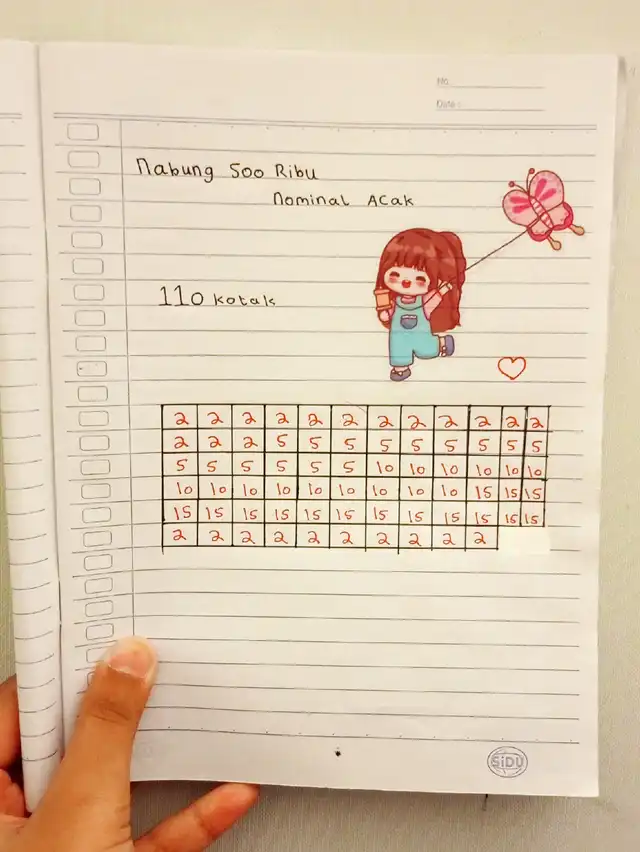 No.
Date :
Nabung 500 Ribu
Nominal Acak
110 kotak
2 2 2 2 2 2 2 2 2 2 2 2
2 2 2 5 5 5 5 5 5 5 5 5
5 5 5 5 5 5 10 10 10 10 10 10
10 10 10 10 10 10 10 10 10 15 15 15
15 15 15 15 15 15 15 15 15 15 15 15
2 2 2 2 2 2 2 2 2 2
SiDU